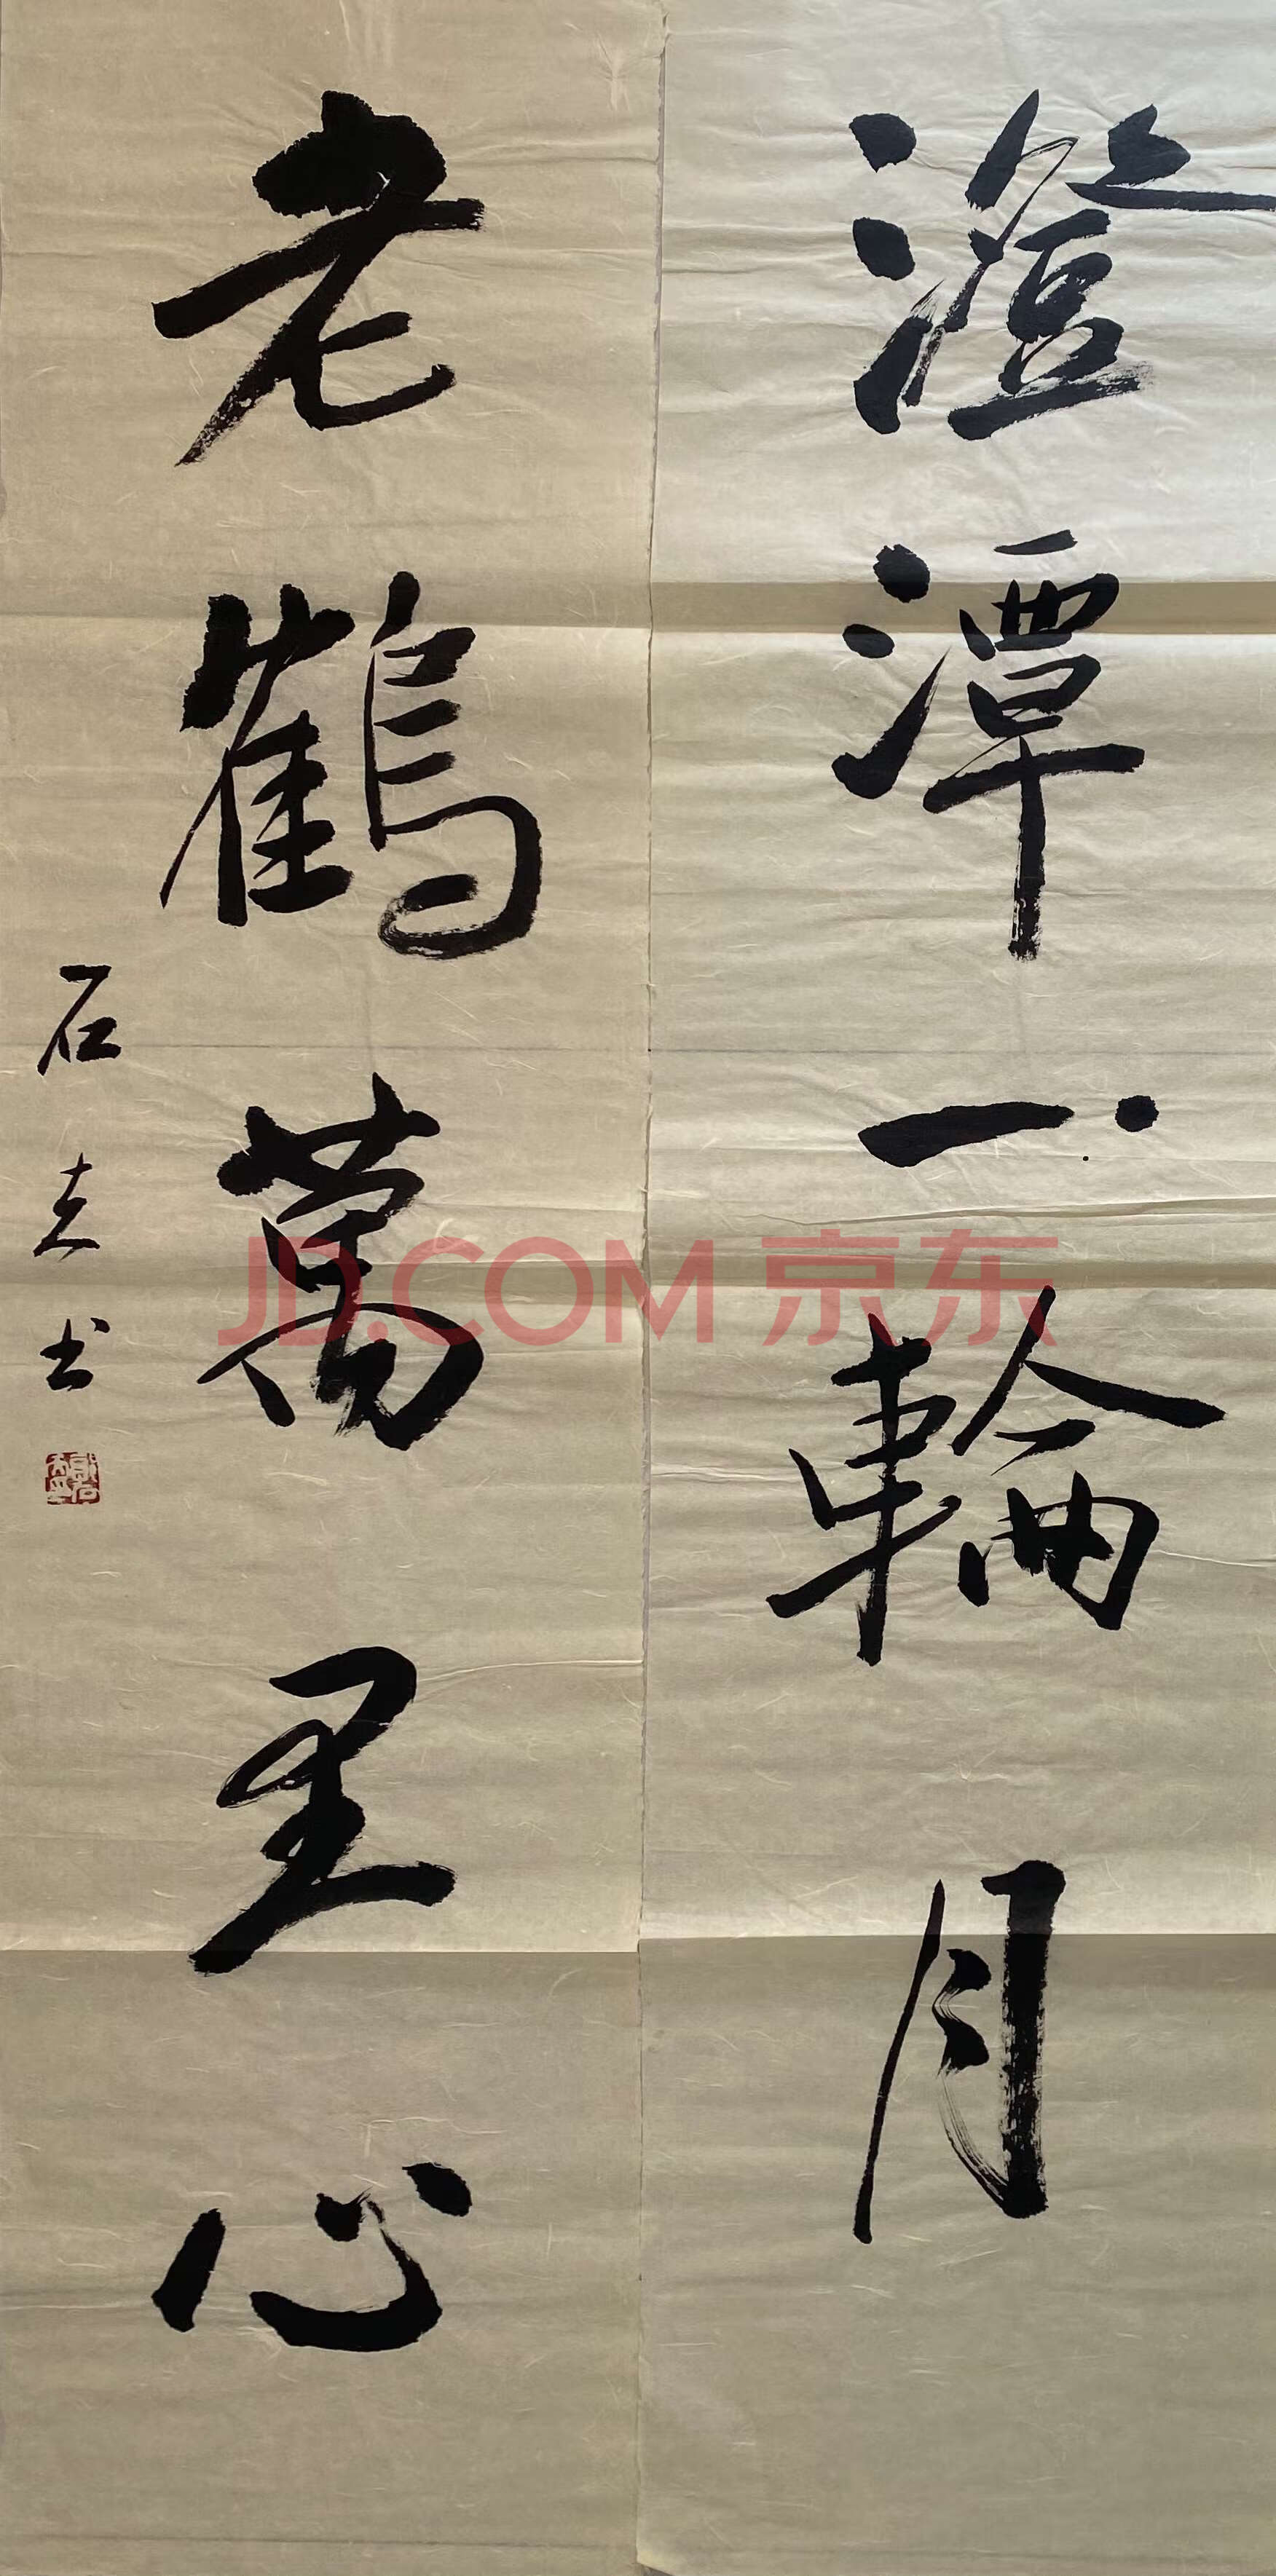 澄潭一輪月
老鶴萬里心
石夫书
JD.COM 京东